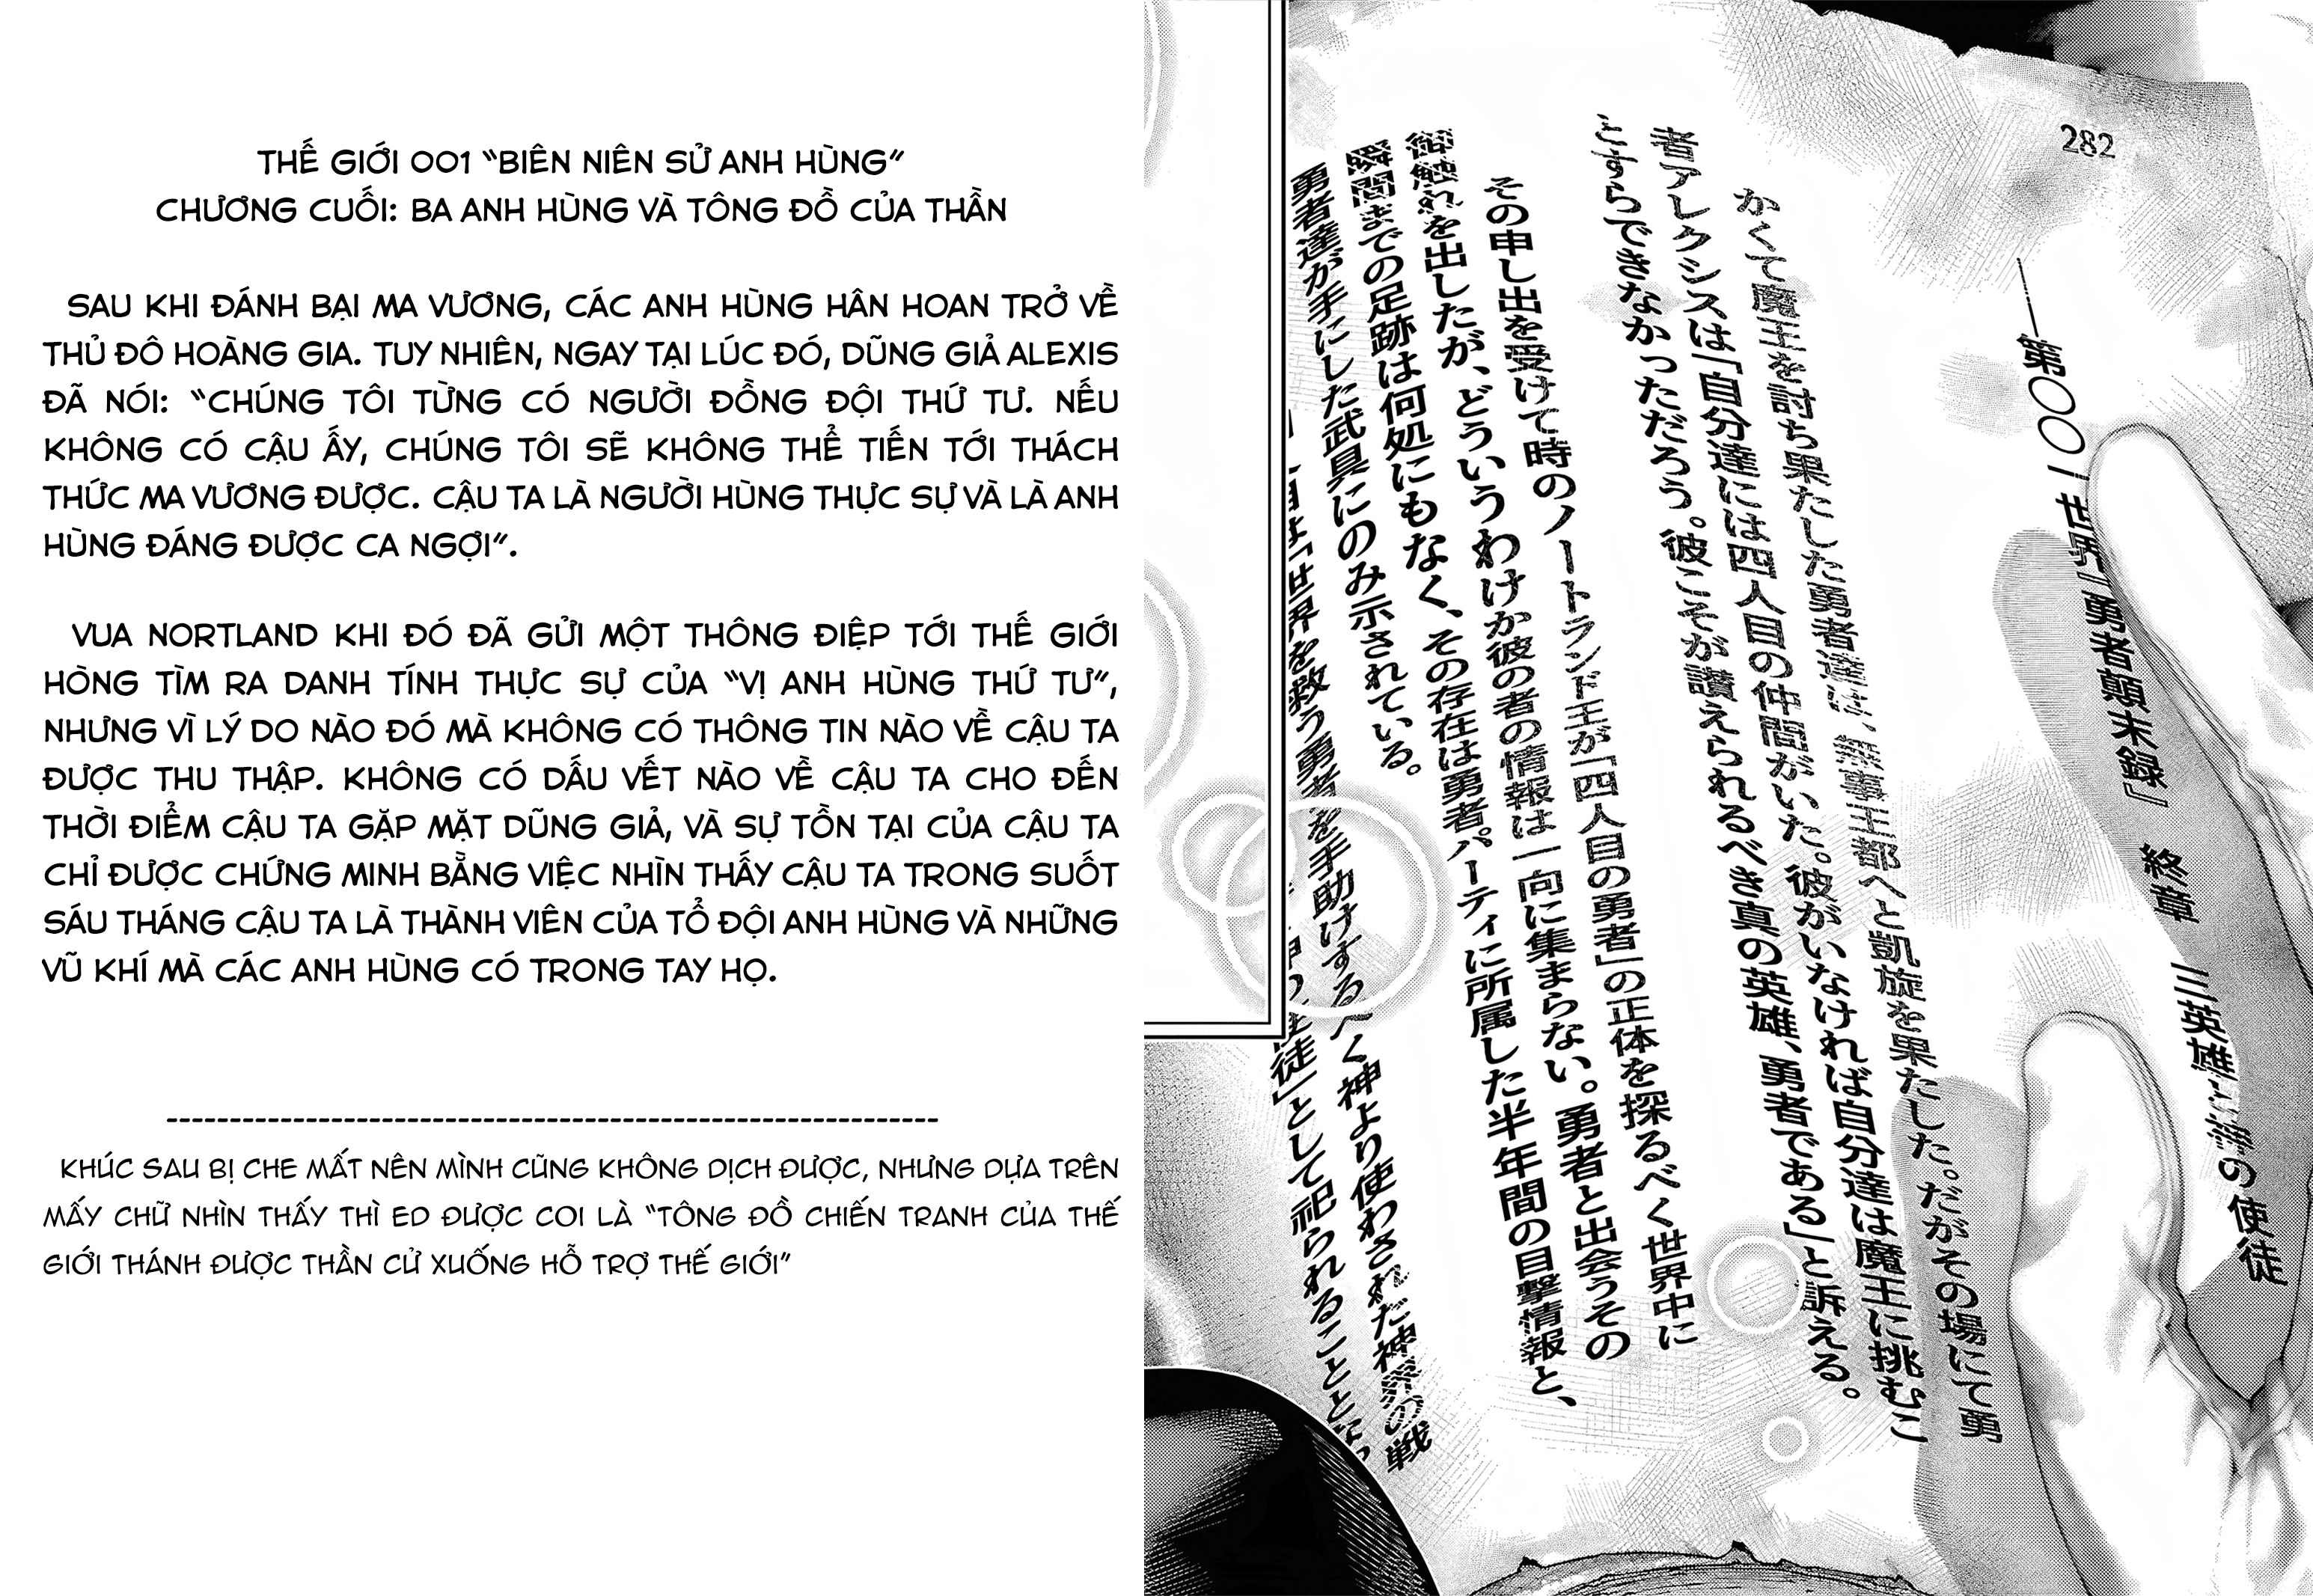 THẾ GIỚI 001 “BIÊN NIÊN SỬ ANH HÙNG”
CHƯƠNG CUỐI: BA ANH HÙNG VÀ TÔNG ĐỒ CỦA THẦN
SAU KHI ĐÁNH BẠI MA VƯƠNG, CÁC ANH HÙNG HÂN HOAN TRỞ VỀ
THỦ ĐÔ HOÀNG GIA. TUY NHIÊN, NGAY TẠI LÚC ĐÓ, DŨNG GIẢ ALEXIS
ĐÃ NÓI: “CHÚNG TÔI TỪNG CÓ NGƯỜI ĐỒNG ĐỘI THỨ TƯ. NẾU
KHÔNG CÓ CẬU ẤY, CHÚNG TÔI SẼ KHÔNG THỂ TIẾN TỚI THÁCH
THỨC MA VƯƠNG ĐƯỢC. CẬU TA LÀ NGƯỜI HÙNG THỰC SỰ VÀ LÀ ANH
HÙNG ĐÁNG ĐƯỢC CA NGỢI”.
VUA NORTLAND KHI ĐÓ ĐÃ GỬI MỘT THÔNG ĐIỆP TỚI THẾ GIỚI
HÒNG TÌM RA DANH TÍNH THỰC SỰ CỦA “VỊ ANH HÙNG THỨ TƯ”,
NHƯNG VÌ LÝ DO NÀO ĐÓ MÀ KHÔNG CÓ THÔNG TIN NÀO VỀ CẬU TA
ĐƯỢC THU THẬP. KHÔNG CÓ DẤU VẾT NÀO VỀ CẬU TA CHO ĐẾN
THỜI ĐIỂM CẬU TA GẶP MẶT DŨNG GIẢ, VÀ SỰ TỒN TẠI CỦA CẬU TA
CHỈ ĐƯỢC CHỨNG MINH BẰNG VIỆC NHÌN THẤY CẬU TA TRONG SUỐT
SÁU THÁNG CẬU TA LÀ THÀNH VIÊN CỦA TỔ ĐỘI ANH HÙNG VÀ NHỮNG
VŨ KHÍ MÀ CÁC ANH HÙNG CÓ TRONG TAY HỌ.
KHÚC SAU BỊ CHE MẤT NÊN MÌNH CŨNG KHÔNG DỊCH ĐƯỢC, NHƯNG DỰA TRÊN
MẤY CHỮ NHÌN THẤY THÌ ED ĐƯỢC COI LÀ “TÔNG ĐỒ CHIẾN TRANH CỦA THẾ
GIỚI THÁNH ĐƯỢC THẦN CỬ XUỐNG HỖ TRỢ THẾ GIỚI”
282
―第〇〇一世界『勇者顛末録』 終章 三英雄と神の使徒
かくて魔王を討ち果たした勇者達は、無事王都へと凱旋を果たした。だがその場にて勇
者アレクシスは「自分達には四人目の仲間がいた。彼がいなければ自分達は魔王に挑むこ
とすらできなかっただろう。彼こそが讃えられるべき真の英雄、勇者である」と訴える。
その申し出を受けて時のノートランド王が「四人目の勇者」の正体を探るべく世界中に
御触れを出したが、どういうわけか彼の者の情報は一向に集まらない。勇者と出会うその
瞬間までの足跡は何処にもなく、その存在は勇者パーティに所属した半年間の目撃情報と、
勇者達が手にした武具にのみ示されている。
は「世界を救う勇者を手助けするべく神より使わされた神界の戦
徒」として祀られることとな